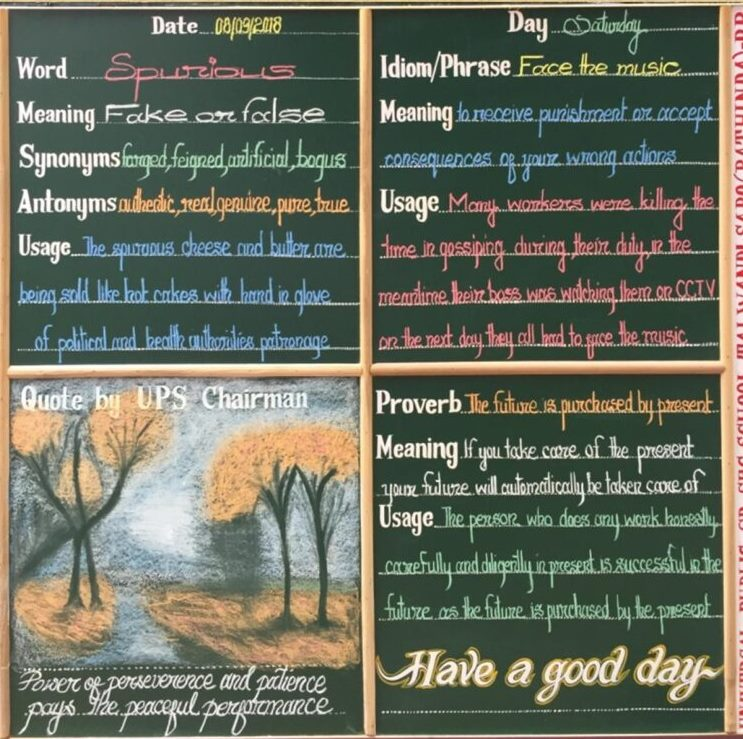 Date 08/09/2018
Word Spurious
Meaning Fake or false
Synonyms forged, feigned, artificial, bogus
Antonyms authentic, real, genuine, pure, true
Usage The spurious cheese and butter are
being sold like hot cakes with hand in glove
of political and health authorities patronage
Day Saturday
Idiom/Phrase Face the music
Meaning to receive punishment or accept
consequences of your wrong actions
Usage Many workers were killing the
time in gossiping during their duty, in the
meantime their boss was watching them on CCTV
on the next day they all had to face the music
Quote by UPS Chairman
Power of perseverence and patience
pays the peaceful performance
Proverb The future is purchased by present
Meaning If you take care of the present
your future will automatically be taken care of
Usage The person who does any work honestly
carefully and diligently in present is successful in the
future as the future is purchased by the present
Have a good day